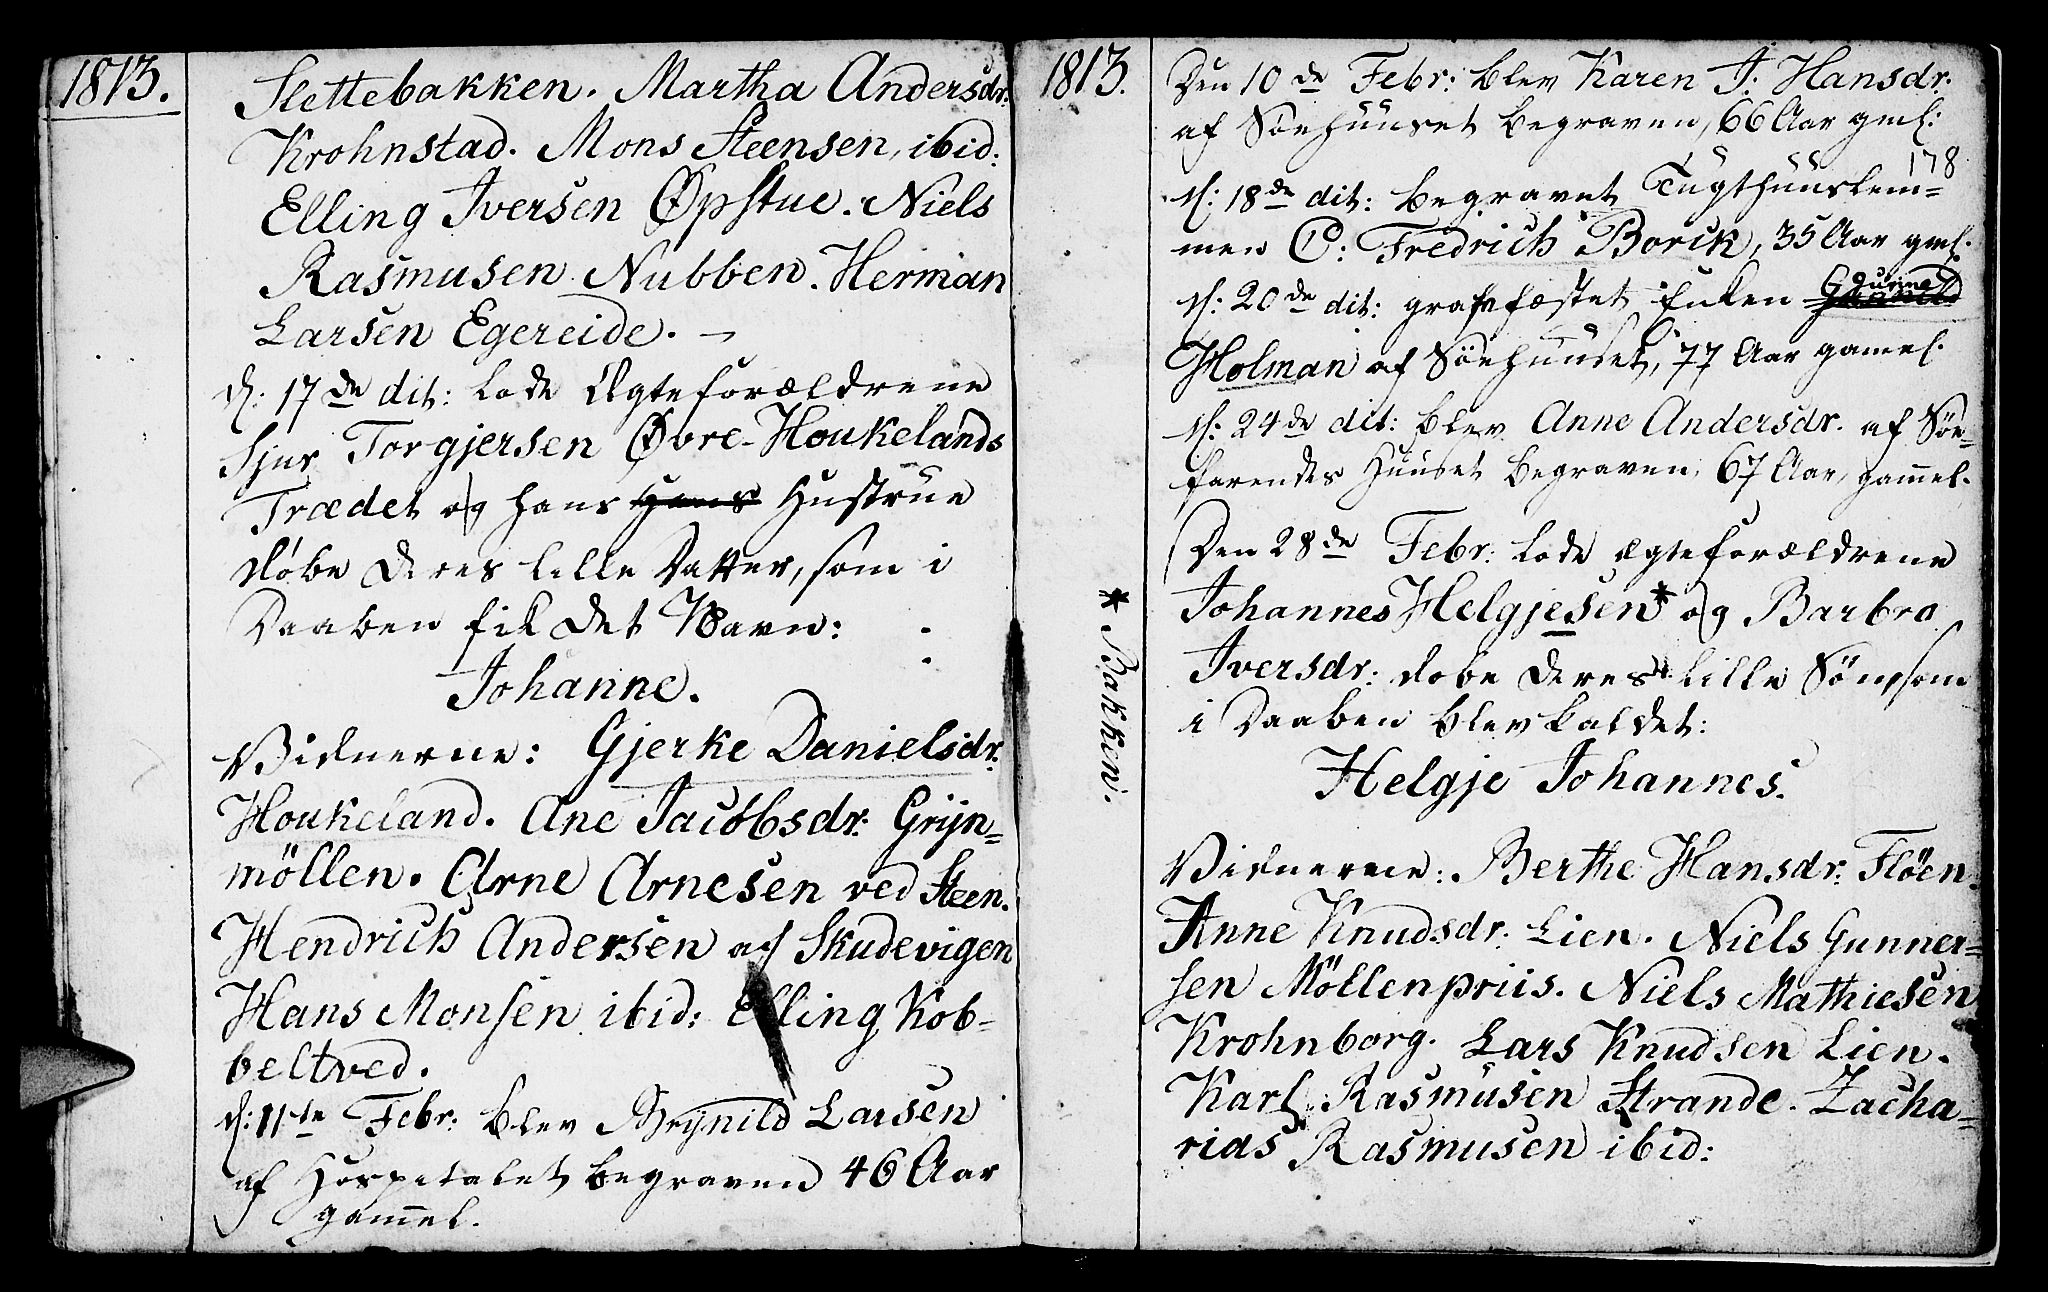 1813.
Slettebakken. Martha Andersdr:
Krohnstad. Mons Steensen, ibid:
Elling Iversen Øpstue. Niels
Rasmusen Nubben. Herman
Larsen Egereide. –
d: 17de dit: lode Ægteforældrene
Sjur Torgjersen Øvre-Houkelands
Trædet og hans Hans Hustrue
døbe deres lille Datter, som i
Daaben fik det Navn:
Johanne.
Vidnerne: Gjerke Danielsdr:
Houkeland. Ane Jacobsdr: Grijn=
möllen. Arne Arnesen ved Steen.
Hendrich Andersen af Skudevigen
Hans Monsen ibid: Elling Kob=
beltved.
d: 11te Febr: blev Brijnild Larsen
af Hospitalet begraven 46 Aar
gam̅el.
1813.
Den 10de Febr: blev Karen J: Hansdr:
af Söehuuset begraven, 66 Aar gml:
178
d: 18de dit: begravet Tugthuuslem=
men C: Fredrich Borck, 35 Aar gml.
d: 20de dit: grafæstet Enken Gurine
Holman af Söehuuset, 77 Aar gamel.
d: 24de dit: blev Anne Andersdr. af Söe=
farendes Huuset begraven, 67 Aar, gam̅el.
Den 28de Febr: lode Ægteforældrene
Johannes Helgjesen* og Barbro
Iversdr: døbe deres lille Sön, som
i Daaben blev kaldet:
Helgje Johannes.
Vidnerne: Berthe Hansdr: Flöen.
Anne Knudsdr: Lien. Niels Gunner=
sen Möllenpriis. Niels Mathiesen
Krohnborg. Lars Knudsen Lien.
Karl Rasmusen Strande. Zacha=
rias Rasmusen ibid:
* Bakken.